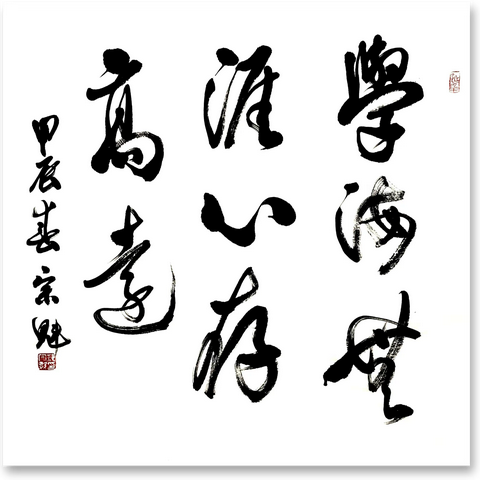 學海無
涯心存
高遠
甲辰春宗魁